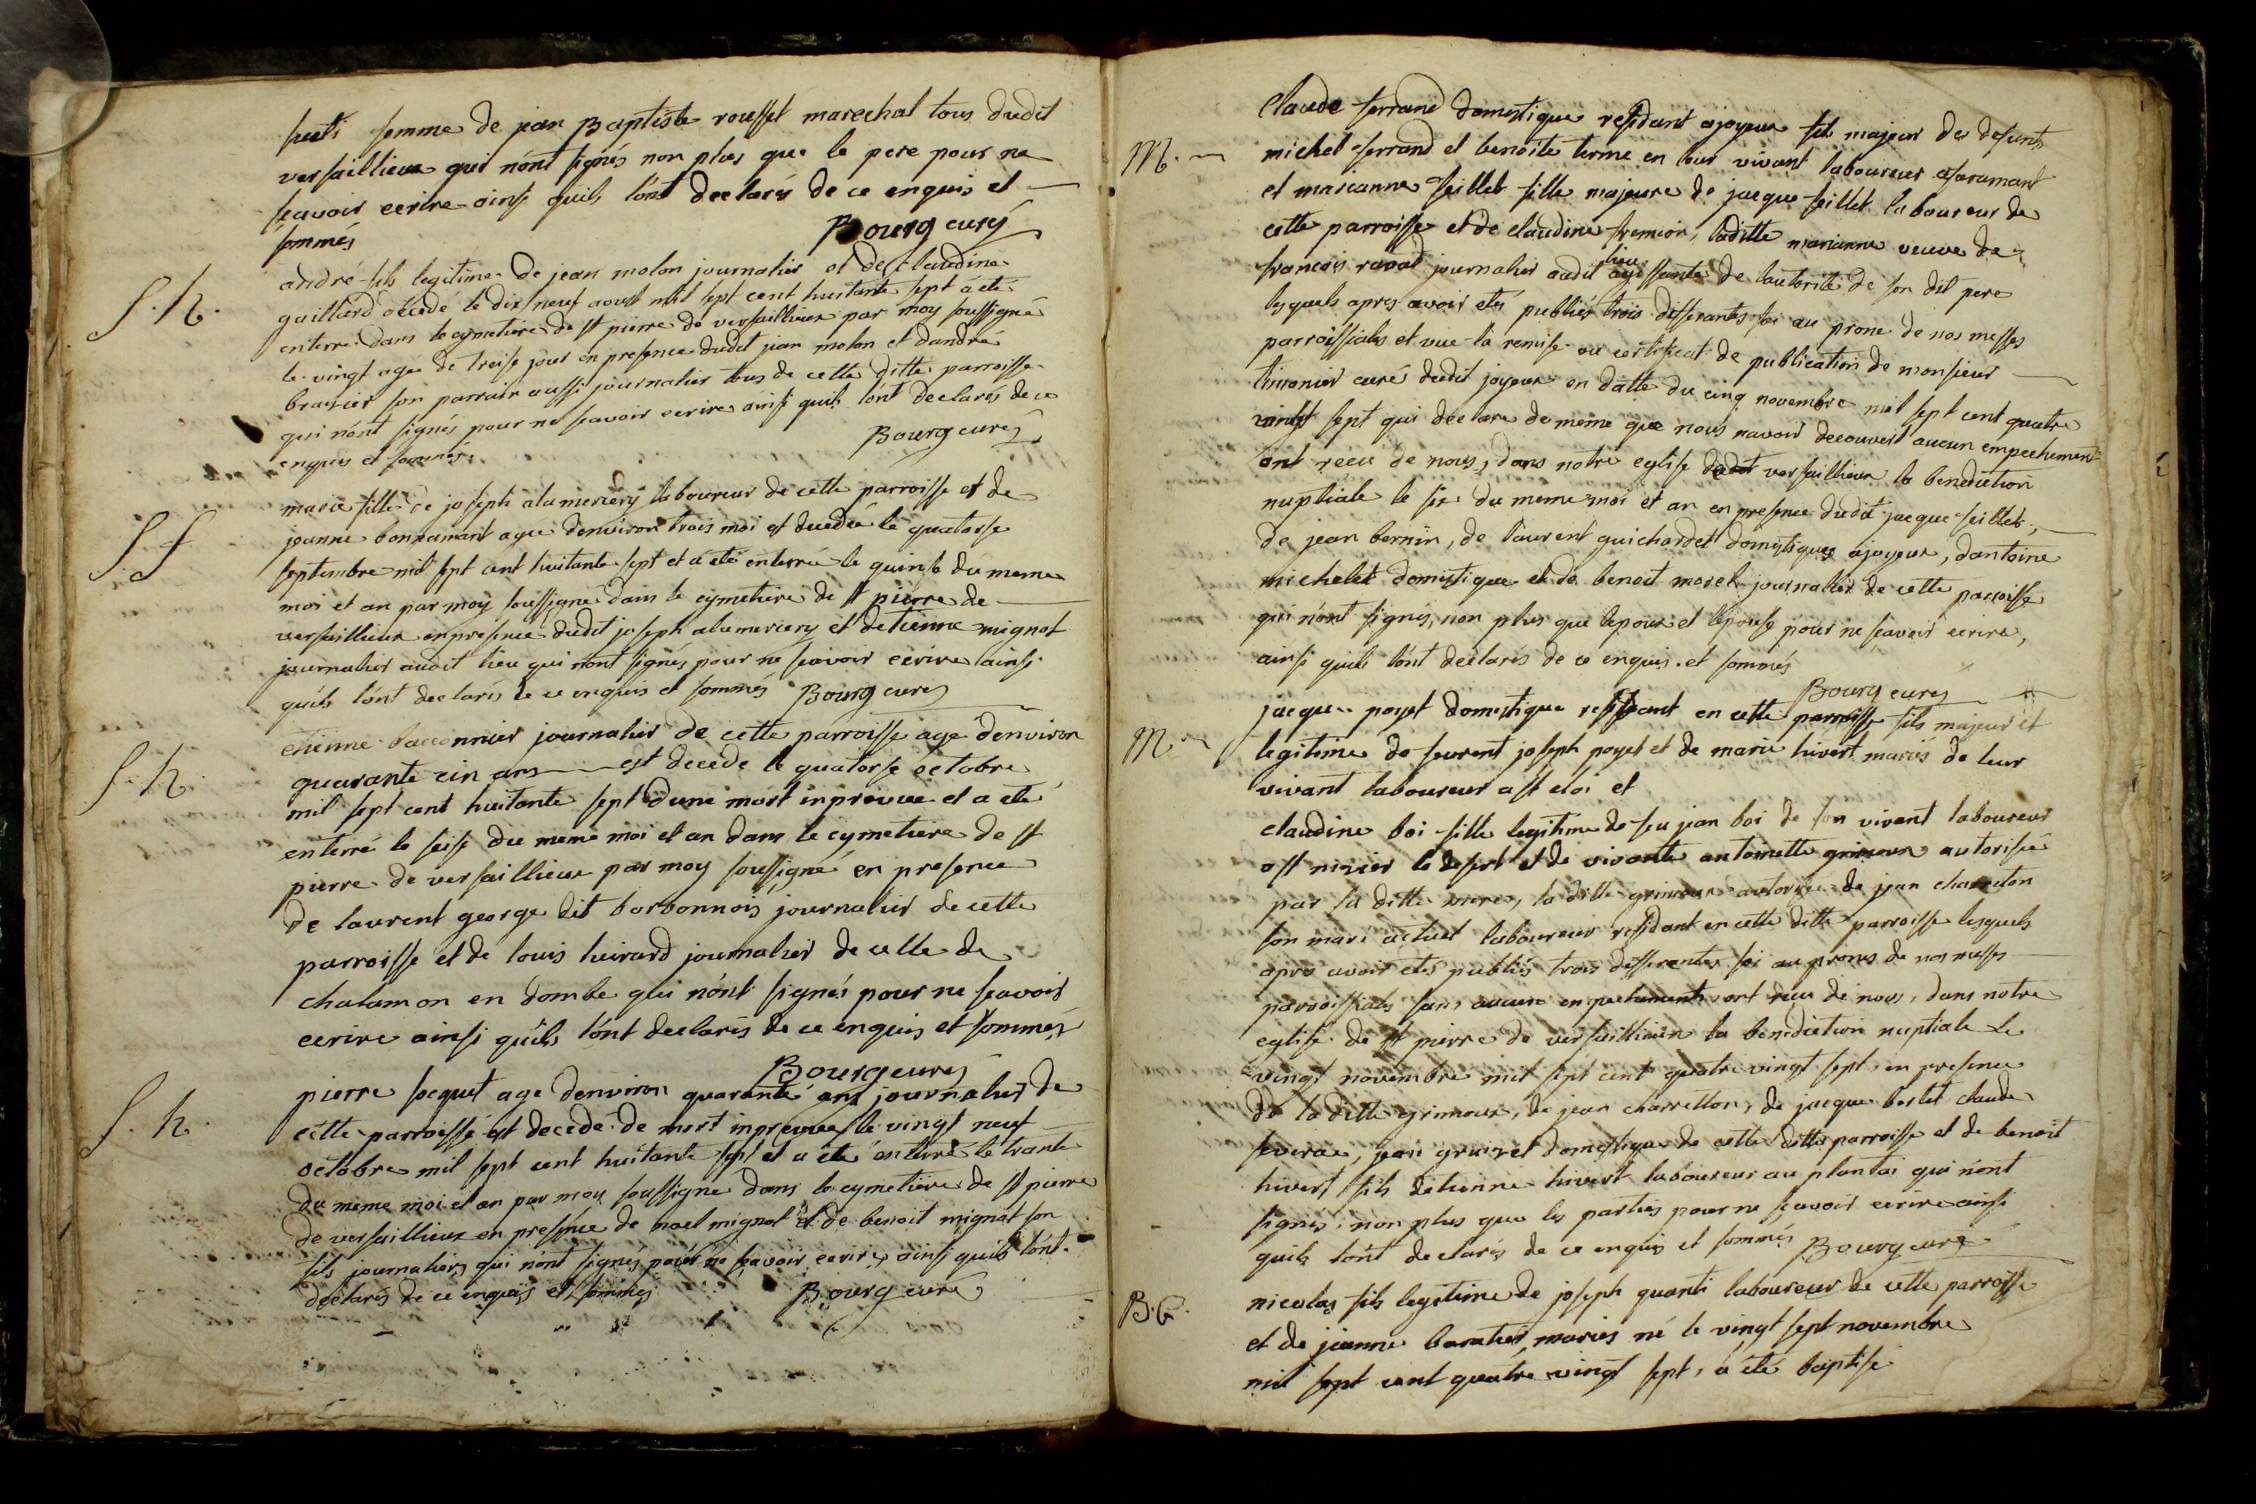 femme de jean Baptiste rousset marechal tous dudit
versaillieux qui nónt signés non plus que le pere pour ne
scavoir ecrire ainsi quils lónt declarés de ce enquis et
sommés
Bourg curé
S. h.
andré fils legitime de jean molon journalier et de claudine
guillard décédé le dix neuf aoust mil sept cent huitante sept a eté
enterré dans le cymetiere de st pierre de versaillieux par moy soussigné
le vingt agé de treise jour en presence dudit jean molon et dandré
brasier son parrain aussi journalier tous de cette ditte parroisse
qui nónt signés pour ne scavoir ecrire ainsi quils lónt declarés de ce
enquis et sommés
Bourg curé
S. f
marie fille de joseph alamerciery laboureur de cette parroisse et de
jeanne bonnamant agee denviron trois moi est decedée le quatorse
septembre mil sept cent huitante sept et a eté enterrée le quinse du meme
moi et an par moy soussigné dans le cymetiere de st pierre de
versaillieux en presence dudit joseph alamerciery et detienne mignot
journalier audit lieu qui nont signés pour ne scavoir ecrire ainsi
quils lónt declarés de ce enquis et sommés Bourg curé
S. h.
etienne baconnier journalier de cette parroisse agé denviron
quarante cin ans est decedé le quatorse octobre
mil sept cent huitante sept dune mort imprevue et a eté
enterré le seise du meme moi et an dans le cymetiere de st
pierre de versaillieux par moy soussigné en presence
de laurent george dit borbonnois journalier de cette
parroisse et de louis huirard journalier de celle de
chalamon en dombe qui nónt signés pour ne scavoir
ecrire ainsi quils lónt declarés de ce enquis et sommés
Bourg curé
S. h.
pierre socquet agé denviron quarante ans journalier de
cette parroisse est decedé de mort imprevue le vingt neuf
octobre mil sept cent huitante sept et a eté enterré le trante
du meme moi et an par moy soussigné dans le cymetiere de st pierre
de versaillieux en presence de noel mignot et de benoit mignot son
fils journaliers qui nónt signés pour ne scavoir ecrire ainsi quils lónt
declarés de ce enquis et sommés Bourg curé
M.
Claude ferrand domestique residant a joyeux fils majeur de defunts
michel ferrand et benoite terme en leur vivant laboureur a faramant
et marianne feillet fille majeure de jacque feillet laboureur de
cette parroisse et de claudine fremion, laditte marianne veuve de
francois ravad journalier audit lieu agissante de lautorité de son dit pere
lesquels apres avoir etés publiés trois differantes foi au prone de nos messes
parroissiales et vue la remise ou certificat de publication de monsieur
limonier curé dudit joyeux en datte du cinq novembre mil sept cent quatre
vingt sept qui declare de meme que nous navoir decouvert aucun empechement
ont recu de nous, dans notre eglise dudit versaillieux la benediction
nuptiale le six du meme moi et an en presence dudit jacque feillet,
de jean bernin, de laurent guichardet domistiques a joyeux, dantoine
michelet domistique et de benoit morel journalier de cette parroisse
qui nónt signés, non plus que lepoux et lepouse pour ne scavoir ecrire,
ainsi quils lónt declarés de ce enquis et sommés
Bourg curé
M.
jacque poyet domestique residant en cette parroisse fils majeur et
legitime de feurent joseph poyet et de marie huvert mariés de leur
vivant laboureur a st eloi et
claudine boi fille legitime de feu jean boi de son vivant laboureur
a st nizier le desert et de vivante antoinette grimoux autorisée
par la ditte mere, la ditte grimoux autorisée de jean charreton
son mari actuel laboureur residant en cette ditte parroisse lesquels
apres avoir etés publiés trois differentes foi au prones de nos messes
parroissiales sans aucun empechements ont recu de nous, dans notre
eglise de st pierre de versaillieux la benediction nuptiale le
vingt novembre mil sept cent quatre vingt sept en presence
de la ditte grimoux, de jean charretton, de jacque bertet claude
jean domestique de cette ditte parroisse et de benoit
huvert fils detienne huvert laboureur au plantai qui nónt
signés non plus que les parties pour ne scavoir ecrire ainsi
quils lónt declarés de ce enquis et sommés Bourg curé
B. G.
nicolas fils legitime de joseph quanti laboureur de cette parroisse
et de jeanne baratier mariés né le vingt sept novembre
mil sept cent quatre vingt sept, a eté baptisé